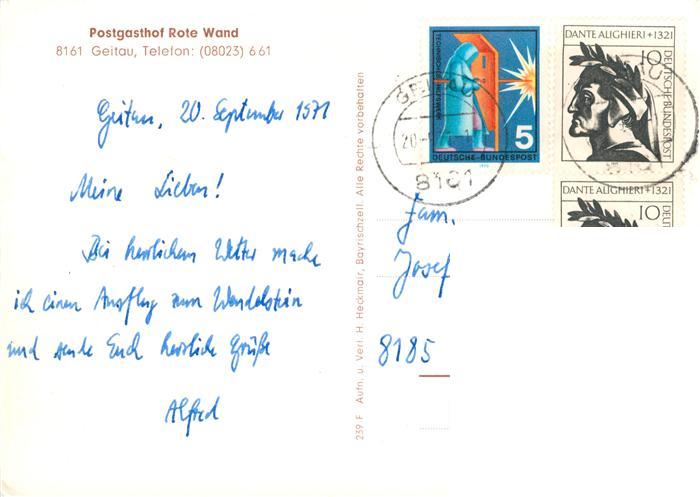 Postgasthof Rote Wand
8161 Geitau, Telefon: (08023) 661
Geitau, 20. September 1971
Meine Lieben!
Bei herrlichem Wetter mache
ich einen Ausflug zum Wendelstein
und sende Euch herzliche Grüße
Alfred
239 F Aufn. u. Verl. H. Heckmair, Bayrischzell. Alle Rechte vorbehalten
TECHNISCHES HILFSWERK
5
DEUTSCHE·BUNDESPOST
1970
DANTE ALIGHIERI+1321
10
DEUTSCHE BUNDESPOST
DANTE ALIGHIERI+1321
10
DEUT
GEITAU
20.
8161
Fam.
Josef
8185